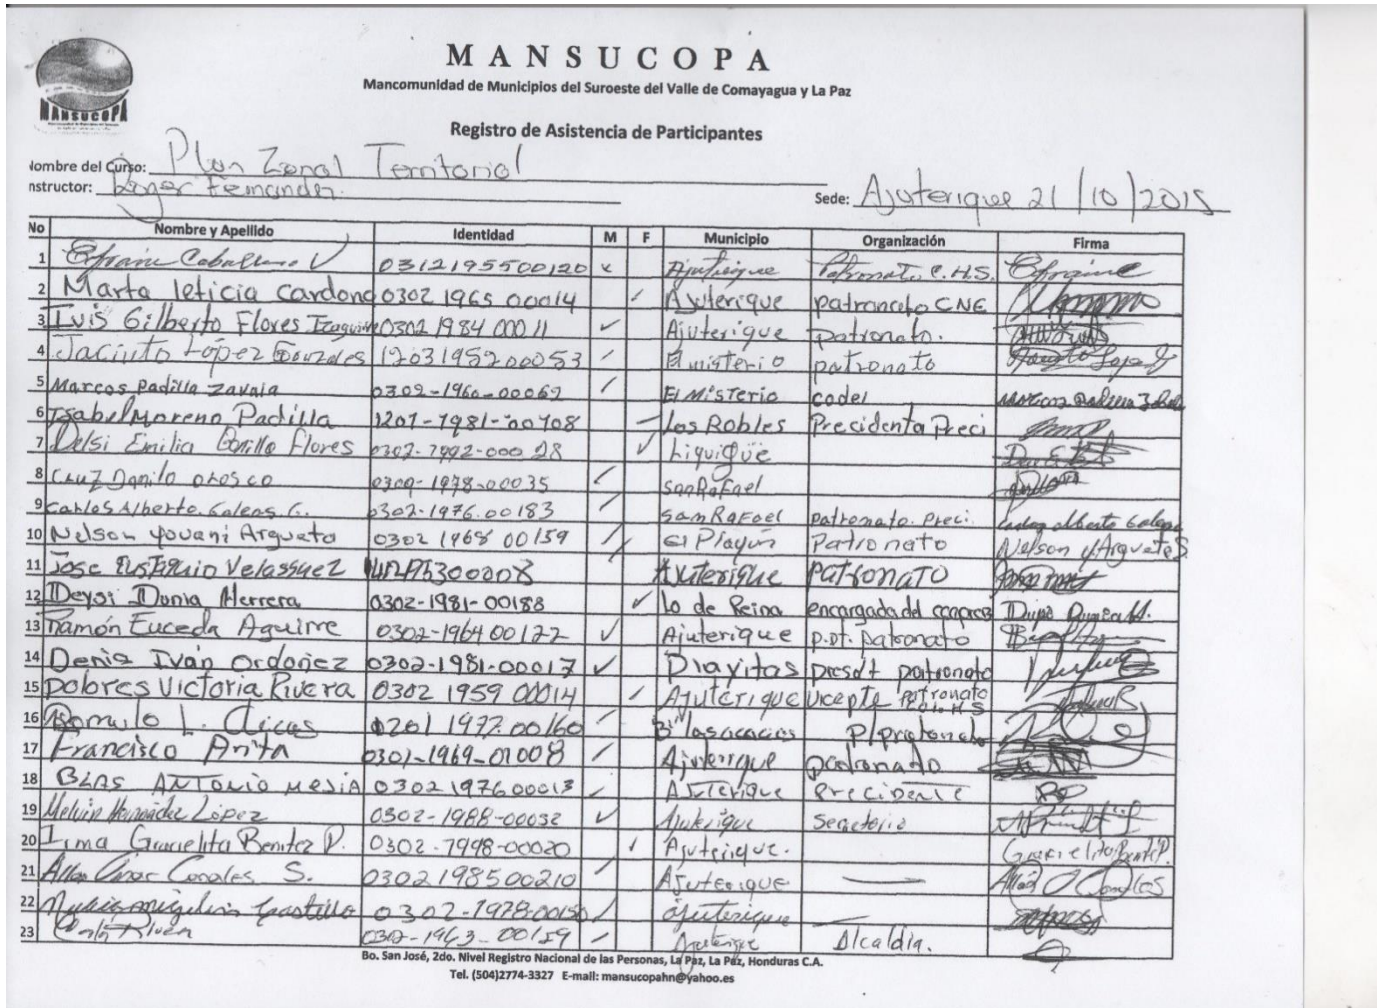 MANSUCOPA
MANSUCOPA
Mancomunidad de Municipios del Suroeste del Valle de Comayagua y La Paz
Registro de Asistencia de Participantes
Nombre del Curso: Plan Zonal Territorial
Instructor: Roger Fernandez. Sede: Ajuterique 21/10/2015
No Nombre y Apellido Identidad M F Municipio Organización Firma
1 Efraín Caballero V 0312195500120 x Ajuterique Patronato C.H.S. Efraine
2 Marta leticia cardona 0302 1965 00014 / Ajuterique patronato CNE
3 Luis Gilberto Flores 0302 1984 00011 ✓ Ajuterique patronato.
4 Jacinto López Gonzales 1203195200053 / El misterio patronato Jacinto Lopez G
5 Marcos Padilla Zavala 0302-1960-00062 / El Misterio codel Marcos Padilla
6 Isabel Moreno Padilla 1201-1981-00708 - Los Robles Precidenta Preci
7 Delsi Emilia Flores ✓ Liquigüe
8 Cruz Danilo orosco 1978-00035 / san Rafael
9 Carlos Alberto Galeas G. 0302-1976.00183 / san Rafael patronato. Preci. Carlos alberto Galeas
10 Nelson Yovani Argueta 0302 1968 00159 / El Playón Patronato Nelson Y Argueta S.
11 Jose Velasquez Ajuterique PATRONATO
12 Deysi Dunia Herrera 0302-1981-00188 ✓ lo de Reina encargada del
13 Ramón Euceda Aguirre 0302-1964 00122 ✓ Ajuterique p.dt. patronato
14 Denis Iván Ordoñez 0302-1981-00017 ✓ Playitas presdt patronato
15 Dolores Victoria Rivera 0302 1959 00014 / Ajuterique vicepte patronato
16 Romulo L. 0201 1977.00160 / Bo las acacias P/protonato
17 Francisco Anita 0301-1969-01008 / Ajuterique patronado
18 BLAS ANTONIO MEJIA 0302197600013 / Precidente
19 Melvin Hernández López 0302-1988-00032 ✓ Ajuterique Secretario
20 Irma Gracielita Benitez P. 0302-1998-00020 / Ajuterique. Gracielita Benit P.
21 Allan Omar Canales S. 0302198500210 Ajuterique — Allan O Canales
22 Castillo 0302-1978-00150 / Ajuterique
23 0302-1963-00159 / Ajuterique Alcaldia.
Bo. San José, 2do. Nivel Registro Nacional de las Personas, La Paz, La Paz, Honduras C.A.
Tel. (504)2774-3327 E-mail: mansucopahn@yahoo.es